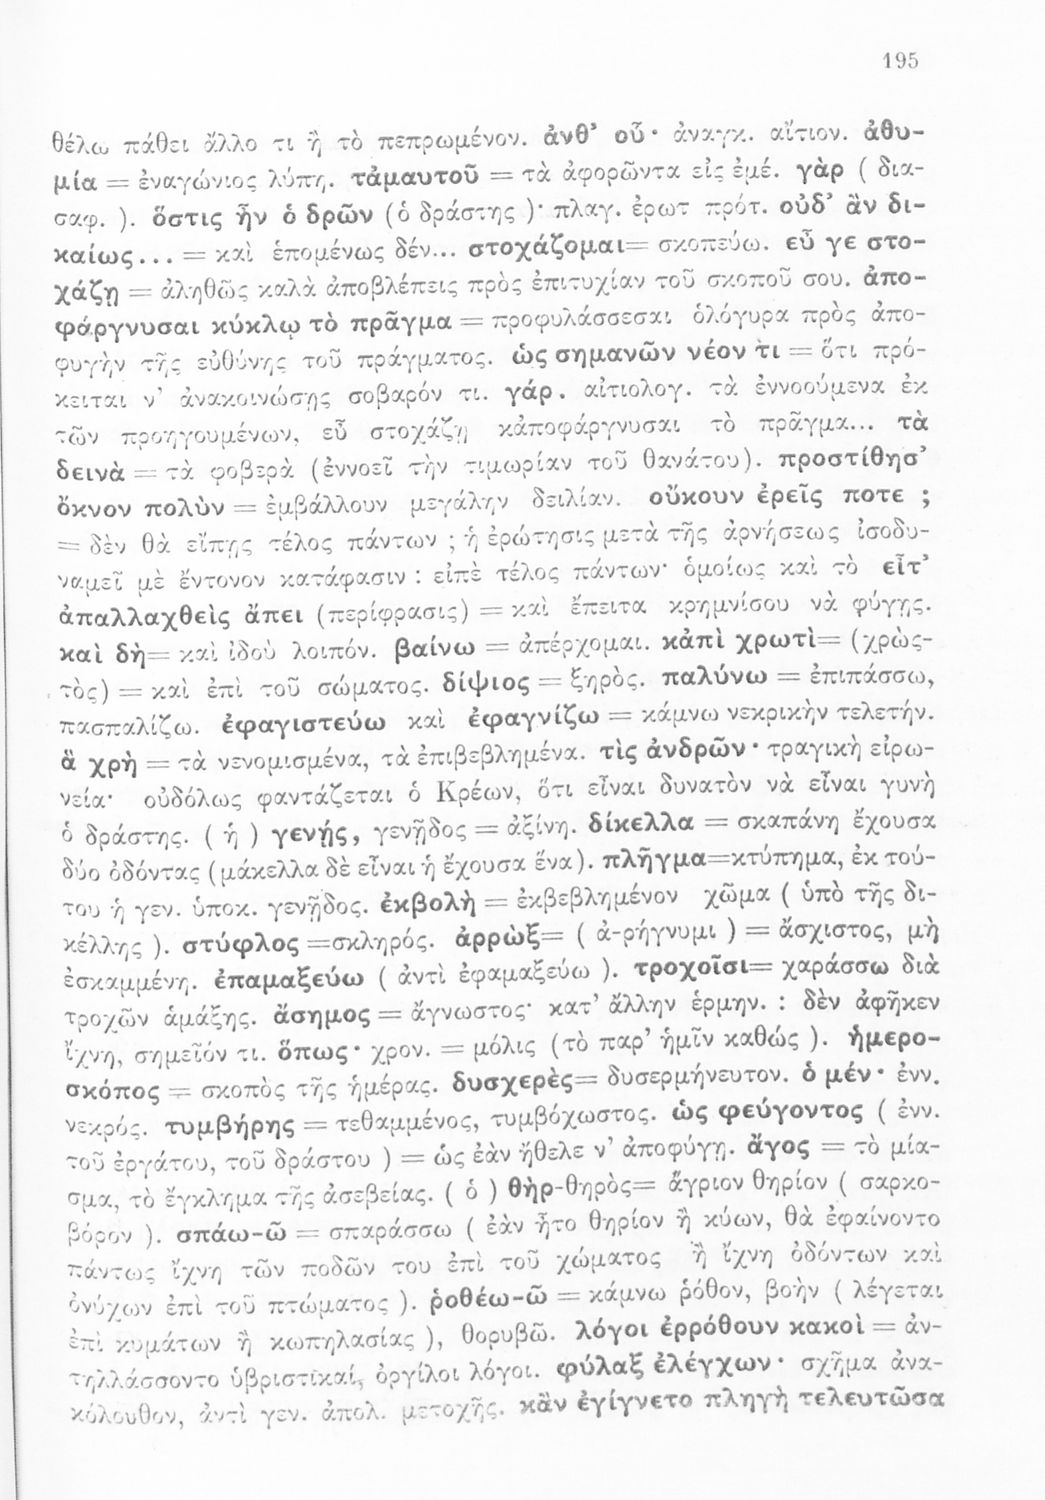 195
θέλω πάθει ἄλλο τι ἢ τὸ πεπρωμένον. ἀνθ’ οὗ· ἀναγκ. αἴτιον. ἀθυ-
μία = ἐναγώνιος λύπη. τἀμαυτοῦ = τὰ ἀφορῶντα εἰς ἐμέ. γὰρ ( δια-
σαφ. ). ὅστις ἦν ὁ δρῶν (ὁ δράστης )· πλαγ. ἐρωτ πρότ. οὐδ’ ἂν δι-
καίως... = καὶ ἑπομένως δέν... στοχάζομαι= σκοπεύω. εὖ γε στο-
χάζῃ = ἀληθῶς καλὰ ἀποβλέπεις πρὸς ἐπιτυχίαν τοῦ σκοποῦ σου. ἀπο-
φάργνυσαι κύκλῳ τὸ πρᾶγμα = προφυλάσσεσαι ὁλόγυρα πρὸς ἀπο-
φυγὴν τῆς εὐθύνης τοῦ πράγματος. ὡς σημανῶν νέον τι = ὅτι πρό-
κειται ν’ ἀνακοινώσῃς σοβαρόν τι. γάρ. αἰτιολογ. τὰ ἐννοούμενα ἐκ
τῶν προηγουμένων, εὖ στοχάζῃ κἀποφάργνυσαι τὸ πρᾶγμα... τὰ
δεινὰ = τὰ φοβερὰ (ἐννοεῖ τὴν τιμωρίαν τοῦ θανάτου). προστίθησ’
ὄκνον πολὺν = ἐμβάλλουν μεγάλην δειλίαν. οὔκουν ἐρεῖς ποτε ;
= δὲν θὰ εἴπῃς τέλος πάντων ; ἡ ἐρώτησις μετὰ τῆς ἀρνήσεως ἰσοδυ-
ναμεῖ μὲ ἔντονον κατάφασιν : εἰπὲ τέλος πάντων· ὁμοίως καὶ τὸ εἶτ’
ἀπαλλαχθεὶς ἄπει (περίφρασις) = καὶ ἔπειτα κρημνίσου νὰ φύγῃς.
καὶ δὴ= καὶ ἰδοὺ λοιπόν. βαίνω = ἀπέρχομαι. κἀπὶ χρωτὶ= (χρὼς-
τὸς) = καὶ ἐπὶ τοῦ σώματος. δίψιος = ξηρὸς. παλύνω = ἐπιπάσσω,
πασπαλίζω. ἐφαγιστεύω καὶ ἐφαγνίζω = κάμνω νεκρικὴν τελετήν.
ἃ χρὴ = τὰ νενομισμένα, τὰ ἐπιβεβλημένα. τὶς ἀνδρῶν· τραγικὴ εἰρω-
νεία· οὐδόλως φαντάζεται ὁ Κρέων, ὅτι εἶναι δυνατὸν νὰ εἶναι γυνὴ
ὁ δράστης. ( ἡ ) γενῄς, γενῇδος = ἀξίνη. δίκελλα = σκαπάνη ἔχουσα
δύο ὀδόντας (μάκελλα δὲ εἶναι ἡ ἔχουσα ἕνα). πλῆγμα=κτύπημα, ἐκ τού-
του ἡ γεν. ὑποκ. γενῇδος. ἐκβολὴ = ἐκβεβλημένον χῶμα ( ὑπὸ τῆς δι-
κέλλης ). στύφλος =σκληρός. ἀρρὼξ= ( ἀ-ρήγνυμι ) = ἄσχιστος, μὴ
ἐσκαμμένη. ἐπαμαξεύω ( ἀντὶ ἐφαμαξεύω ). τροχοῖσι= χαράσσω διὰ
τροχῶν ἁμάξης. ἄσημος = ἄγνωστος· κατ’ ἄλλην ἑρμην. : δὲν ἀφῆκεν
ἴχνη, σημεῖόν τι. ὅπως· χρον. = μόλις (τὸ παρ’ ἡμῖν καθώς ). ἡμερο-
σκόπος = σκοπὸς τῆς ἡμέρας. δυσχερὲς= δυσερμήνευτον. ὁ μέν· ἐνν.
νεκρός. τυμβήρης = τεθαμμένος, τυμβόχωστος. ὡς φεύγοντος ( ἐνν.
τοῦ ἐργάτου, τοῦ δράστου ) = ὡς ἐὰν ἤθελε ν’ ἀποφύγῃ. ἄγος = τὸ μία-
σμα, τὸ ἔγκλημα τῆς ἀσεβείας. ( ὁ ) θὴρ-θηρὸς= ἄγριον θηρίον ( σαρκο-
βόρον ). σπάω-ῶ = σπαράσσω ( ἐὰν ἦτο θηρίον ἢ κύων, θὰ ἐφαίνοντο
πάντως ἴχνη τῶν ποδῶν του ἐπὶ τοῦ χώματος ἢ ἴχνη ὀδόντων καὶ
ὀνύχων ἐπὶ τοῦ πτώματος ). ῥοθέω-ῶ = κάμνω ῥόθον, βοὴν ( λέγεται
ἐπὶ κυμάτων ἢ κωπηλασίας ), θορυβῶ. λόγοι ἐρρόθουν κακοὶ = ἀν-
τηλλάσσοντο ὑβριστικαί, ὀργίλοι λόγοι. φύλαξ ἐλέγχων· σχῆμα ἀνα-
κόλουθον, ἀντὶ γεν. ἀπολ. μετοχῆς. κἂν ἐγίγνετο πληγὴ τελευτῶσα